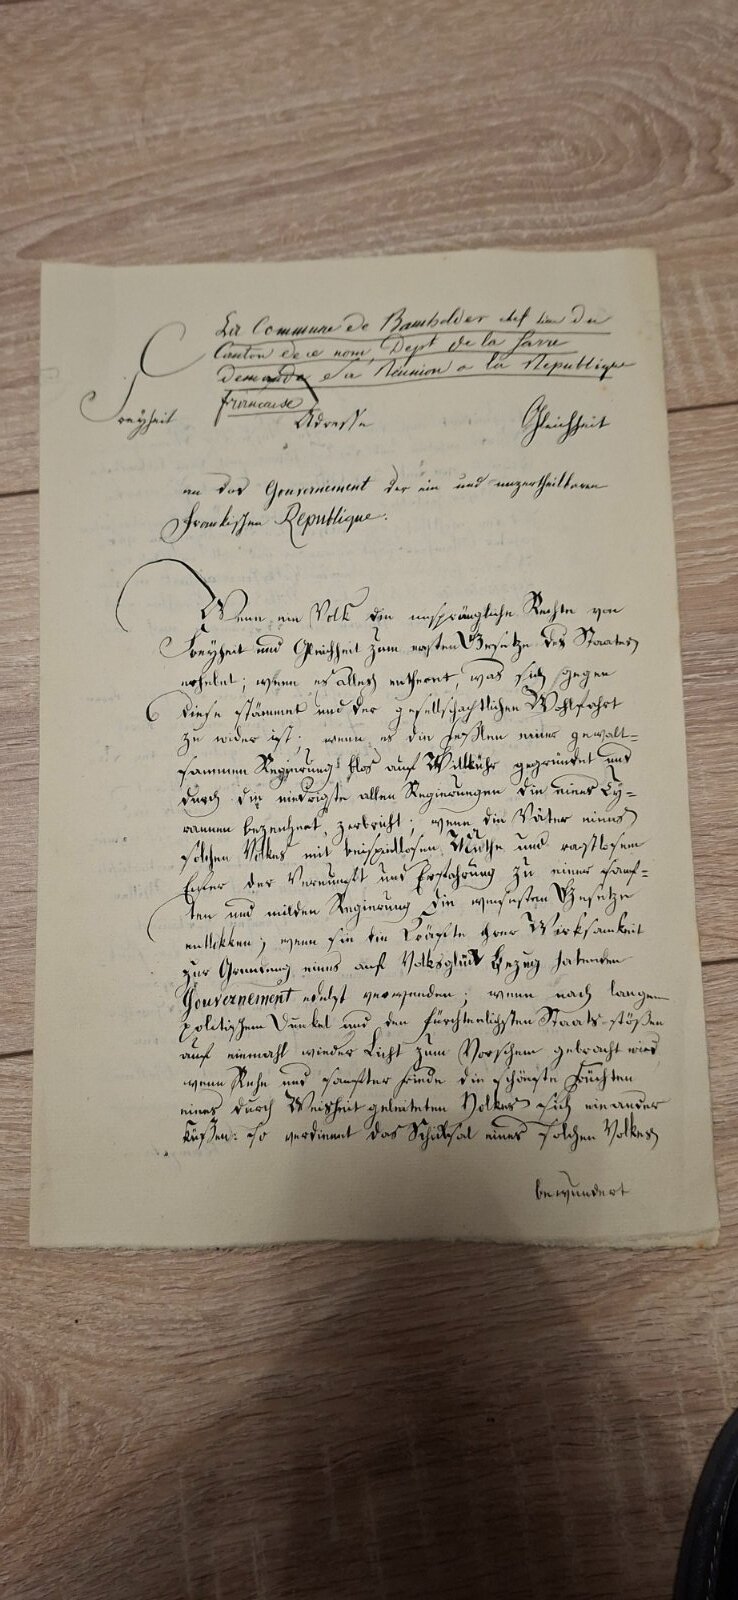 La Commune de Baumholder chef lieu du
Canton de ce nom, Dept de la Sarre
demande sa Réunion a la Republique
française
Freyheit Adresse Gleichheit
an das Gouvernement der ein und unzertheilbaren
Fränkischen Republique.
Wenn ein Volk die ursprüngliche Rechte von
Freyheit und Gleichheit zum ersten Gesetze des Staates
erhebet; wenn es alles entfernt, was sich gegen
diese stämmet und der gesellschaftlichen Wohlfahrt
zu wider ist; wenn es die Fesslen einer gewalt-
sammen Regierung blos auf Willkühr gegründet und
durch die niedrigste allen Regierungen die eines Ty-
rannen bezeichnet, zerbricht; wenn die Väter eines
solchen Volkes mit beispiellosen Muthe und rastlosem
Eifer der Vernunft und Erfahrung zu einer sanf-
ten und milden Regierung die weisesten Gesetze
entlokken; wenn sie die Kräfte ihrer Wirksamkeit
zur Gründung eines auf Volksglük Bezug habenden
Gouvernement verwenden; wenn nach langem
politischem Dunkel und den fürchterlichsten Staats-stößen
auf einmahl wieder Licht zum Vorschein gebracht wird
wenn Ruhe und sanfter Friede die schönste Früchten
eines durch Weisheit geleiteten Volkes sich einander
küssen: so verdienet das Schiksal eines solchen Volkes
bewundert